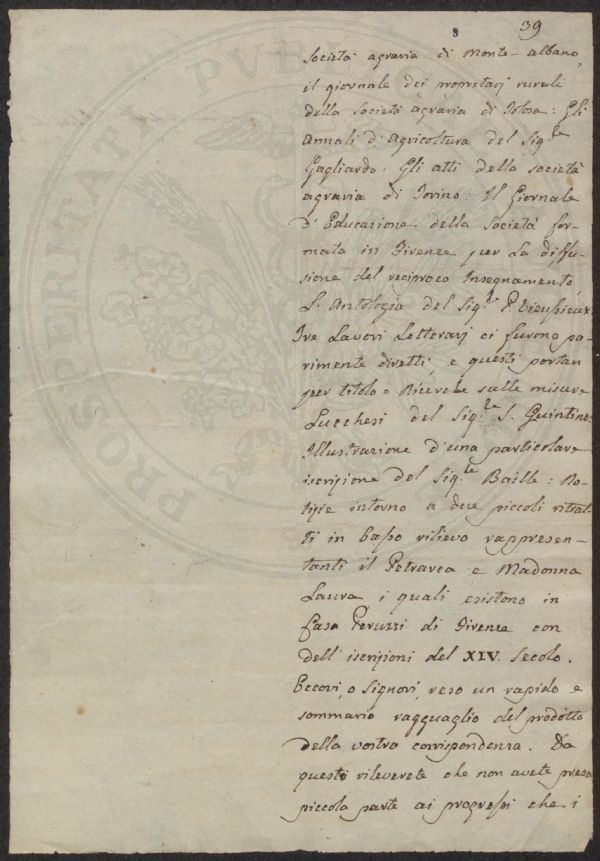 39
Società agraria di Monte-albano,
il giornale dei proprietarj rurali
della Società agraria di Tolosa: Gli
Annali d'Agricoltura del Sig.re
Gagliardo: Gli atti della società
agraria di Torino: Il Giornale
d'Educazione della Società for-
mata in Firenze per la diffu-
sione del reciproco Insegnamento
L'Antologia del Sig.re Vieusseux
Tre Lavori Letterarj ci furono pa-
rimente diretti, e questi portan
per titolo = Ricerche sulle misure
Lucchesi del Sig.re S. Quintino:
Illustrazione d'una particolare
iscrizione del Sig.re Baille: No-
tizie intorno a due piccoli ritrat-
ti in basso rilievo rappresen-
tanti il Petrarca e Madonna
Laura i quali esistono in
Casa Peruzzi di Firenze con
dell'iscrizioni del XIV. Secolo.
Eccovi, o Signori, reso un rapido e
sommario ragguaglio del prodotto
della vostra corrispondenza. Da
questi rileverete che non avete presa
piccola parte ai progressi che i
PROSPERITATI PVB